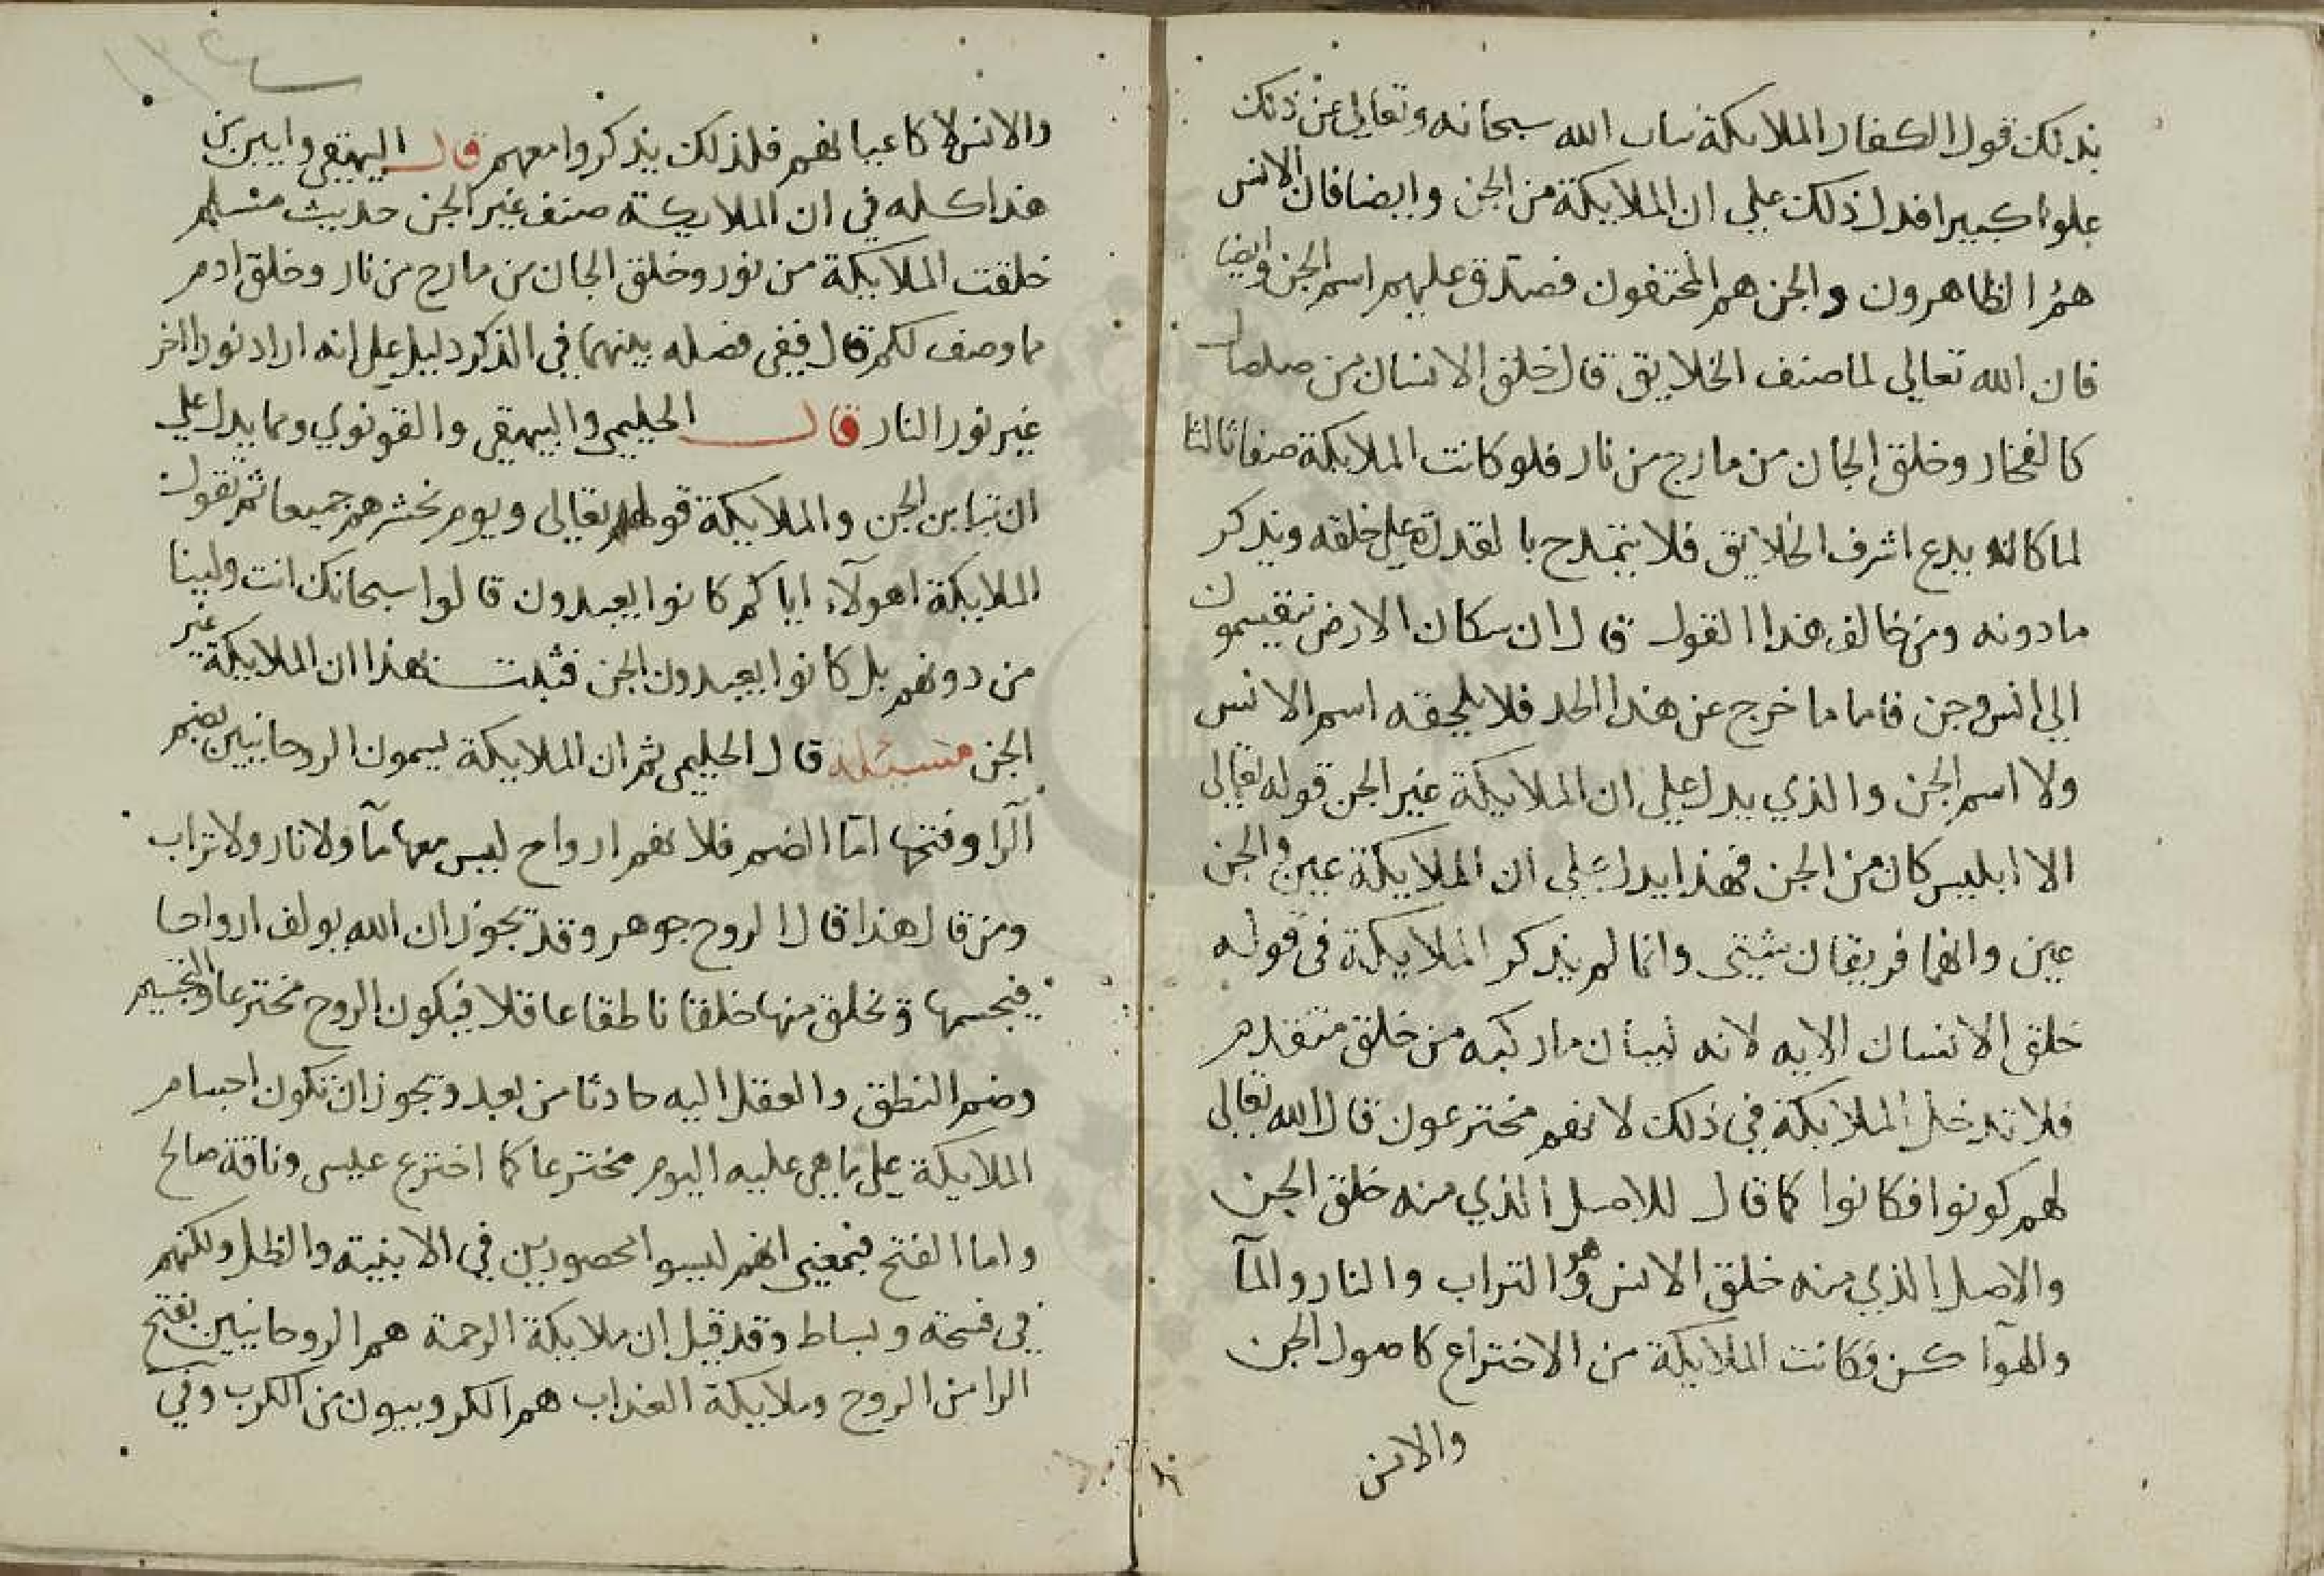 بذلك قول الكفار الملايكة بنات الله سبحانه وتعالى عن ذلك
علوا كبيرا فدل ذلك على ان الملايكة من الجن وايضا فان الانس
هم الظاهرون والجن هم المختفون فصدق عليهم اسم الجن وايضا
فان الله تعالى لما صنف الخلايق قال خلق الانسان من صلصال
كالفخار وخلق الجان من مارج من نار فلو كانت الملايكة صنفا ثالثا
لما كان يدع اشرف الخلايق فلا يتمدح بالقدرة على خلقه ويذكر
ما دونه ومن خالف هذا القول قال ان سكان الارض ينقسمون
الى انس وجن فاما ما خرج عن هذا الحد فلا يلحقه اسم الانس
ولا اسم الجن والذي يدل على ان الملايكة غير الجن قوله تعالى
الا ابليس كان من الجن فهذا يدل على ان الملايكة عين والجن
عين وانهما فريقان شتى وانما لم يذكر الملايكة في قوله
خلق الانسان الايه لانه لبيان ما ركبه من خلق متقدم
فلا تدخل الملايكة في ذلك لانهم مخترعون قال الله تعالى
لهم كونوا فكانوا كما قال للاصل الذي منه خلق الجن
والاصل الذي منه خلق الانس وهو التراب والنار والمآ
والهوآ كن فكانت الملايكة من الاختراع كاصول الجن
والانس
والانس لا كاعيانهم فلذلك يذكروا معهم قال البيهقي وابين من
هذا كله في ان الملايكة صنف غير الجن حديث مسلم
خلقت الملايكة من نور وخلق الجان من مارج من نار وخلق ادم
مما وصف لكم قال ففي فصله بينهما في الذكر دليل على انه اراد نورا اخر
غير نور النار قال الحليمي والبيهقي والقونوي ومما يدل على
ان تباين الجن والملايكة قوله تعالى ويوم نحشرهم جميعا ثم نقول
للملايكة اهولآء اياكم كانوا يعبدون قالوا سبحانك انت ولينا
من دونهم بل كانوا يعبدون الجن فثبت بهذا ان الملايكة غير
الجن مسئلة قال الحليمي ثم ان الملايكة يسمون الروحانيين بضم
الرا وفتحها اما الضم فلانهم ارواح ليس معها مآ ولا نار ولا تراب
ومن قال هذا قال الروح جوهر وقد يجوز ان الله يولف ارواحا
فيجسمها ويخلق منها خلقا ناطقا عاقلا فيكون الروح مخترعا والتجسيم
وضم النطق والعقل اليه حادثا من بعد ويجوز ان تكون اجسام
الملايكة على ما هي عليه اليوم مخترعا كما اخترع عيسى وناقة صالح
واما الفتح فبمعنى انهم ليسوا محصورين في الابنية والظل ولكنهم
في فسحة وبساط وقد قيل ان ملايكة الرحمة هم الروحانيين بفتح
الرا من الروح وملايكة العذاب هم الكروبيون من الكرب وفي